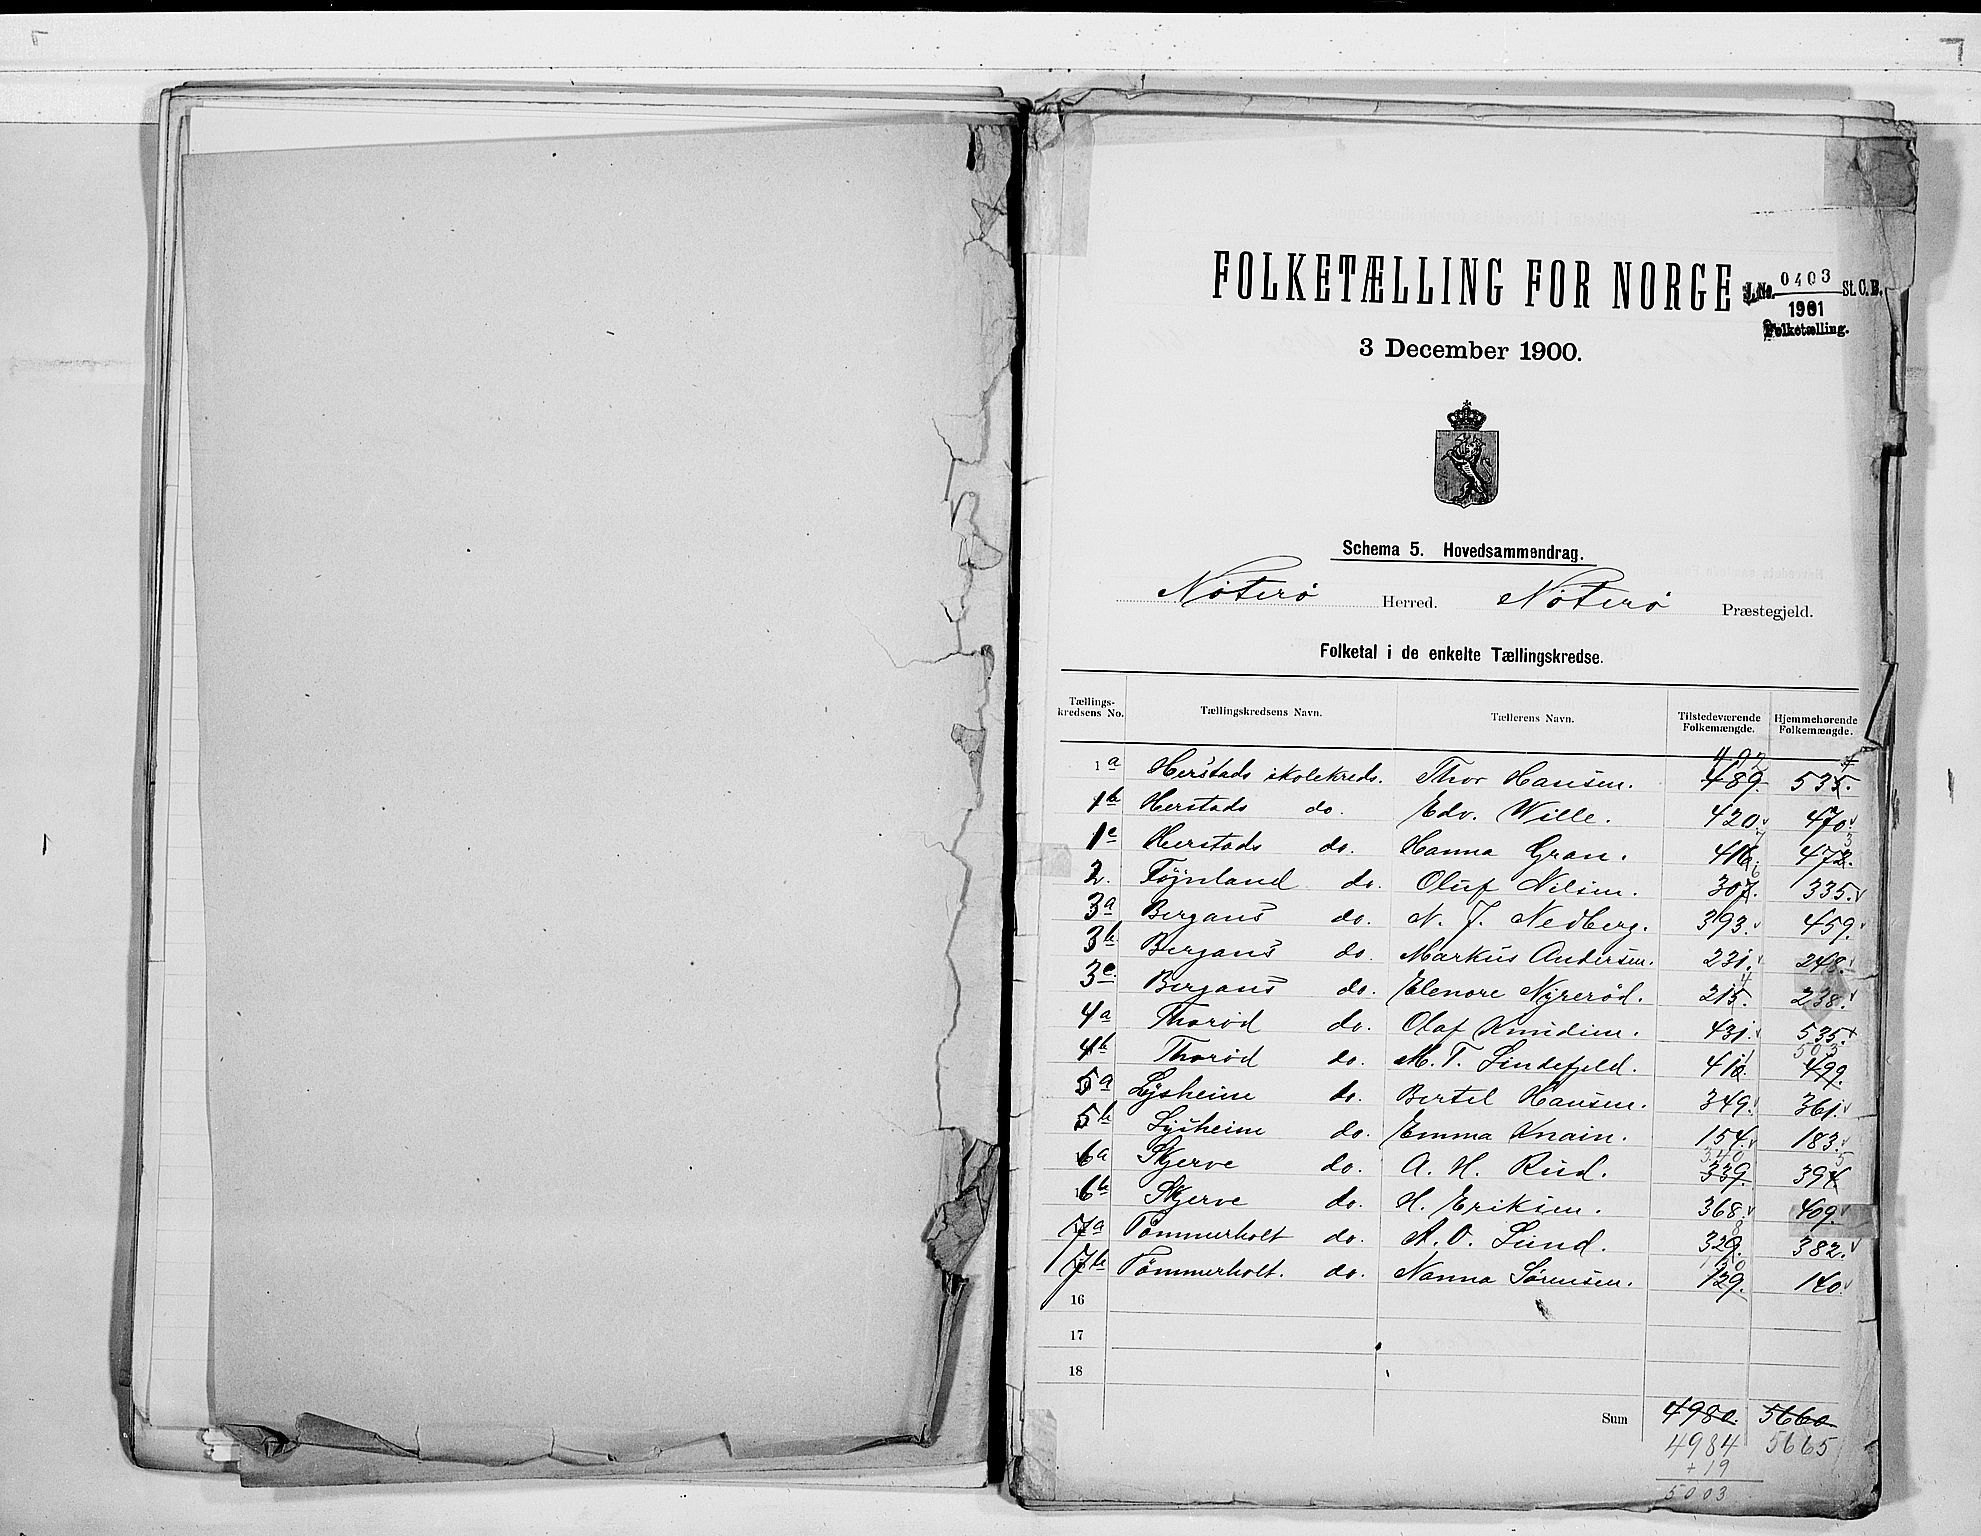 FOLKETÆLLING FOR NORGE
J. No. 0403 St. C. B.
1901
Folketælling.
3 December 1900.
Schema 5. Hovedsammendrag.
Nøterø Herred. Nøterø Præstegjeld.
Folketal i de enkelte Tællingskredse.
Tællings-kredsens No. Tællingskredsens Navn. Tællerens Navn. Tilstedeværende Folkemængde. Hjemmehørende Folkemængde.
1a Herstads skolekreds. Thor Hansen. 489. 492 535. 4
1b Herstads do. Edv. Wille. 420. 470.
1c Herstads do. Hanna Gran. 416. 7 472. 3
2. Føjnland do. Oluf Nilsen. 307. 6 335.
3a Bergans do. N. J. Nedberg. 393. 459.
3b Bergans do. Markus Andersen. 231. 248.
3c Bergans do. Elenore Nyrerød. 215. 4 238.
4a Thorød do. Olaf Knudsen. 431. 535.
4b Thorød do. M. T. Lindefjeld. 410. 1 499. 503
5a Lysheim do. Bertel Hansen. 349. 361.
5b Lysheim do. Emma Knain. 154. 183.
6a Skjerve do. A. H. Rud. 339. 340 394 5
6b Skjerve do. H. Eriksen. 368. 409.
7a Tømmerholt do. A. O. Lund. 329. 8 382.
7b Tømmerholt. do. Nanna Sørensen. 129. 130 140.
16
17
18
Sum 4980. 5660
4984 5665
+19
5003